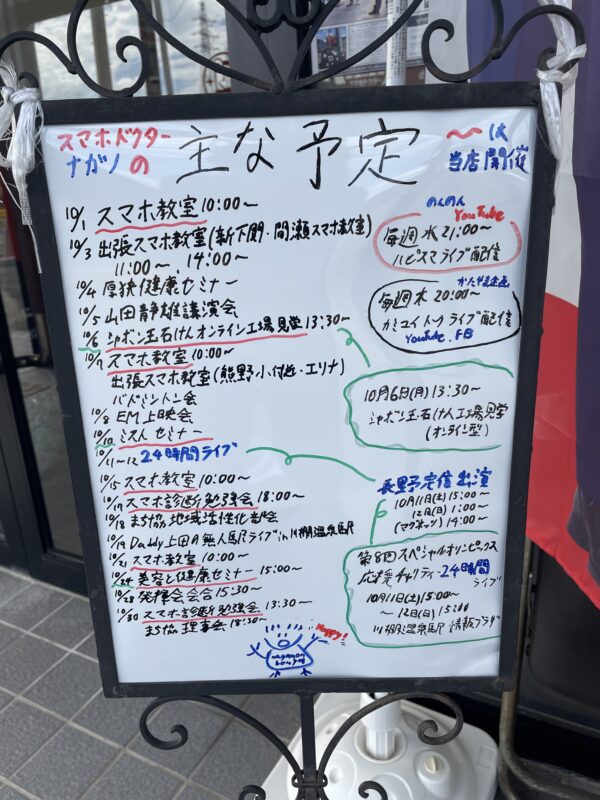 スマホドクター
ナガノの
主な予定
〜は
当店開催
10/1 スマホ教室 10:00〜
10/3 出張スマホ教室(新下関・間瀬スマホ教室)
11:00〜 14:00〜
10/4 厚狭健康セミナー
10/5 山田静雄講演会
10/6 シャボン玉石けんオンライン工場見学 13:30〜
10/7 スマホ教室 10:00〜
出張スマホ教室(熊野小付近・エリナ)
バドミントン会
10/8 EM上映会
10/10 ミスト セミナー
10/11〜12 24時間ライブ
10/15 スマホ教室 10:00〜
10/17 スマホ診断勉強会 18:00〜
10/18 まち協 地域活性化部会
10/19 Daddy上田の無人駅ライブin川棚温泉駅
10/21 スマホ教室 10:00〜
10/24 美容と健康セミナー 15:00〜
10/28 発揮会会合 15:30〜
10/30 スマホ診断勉強会 13:30〜
まち協 理事会 18:30〜
のんのん
YouTube
毎週水 21:00〜
ハピスマライブ配信
かたやま企画
毎週木 20:00〜
カミユイトークライブ配信
YouTube・FB
10月6日(月) 13:30〜
シャボン玉石けん工場見学
(オンライン型)
長野定信 出演
10月11日(土) 15:00〜
12日(日) 1:00〜
(マグネッツ) 14:00〜
第8回スペシャルオリンピックス
応援チャリティー24時間
ライブ
10月11日(土) 15:00
〜12日(日) 15:00
川棚温泉駅 情報プラザ
Happy!